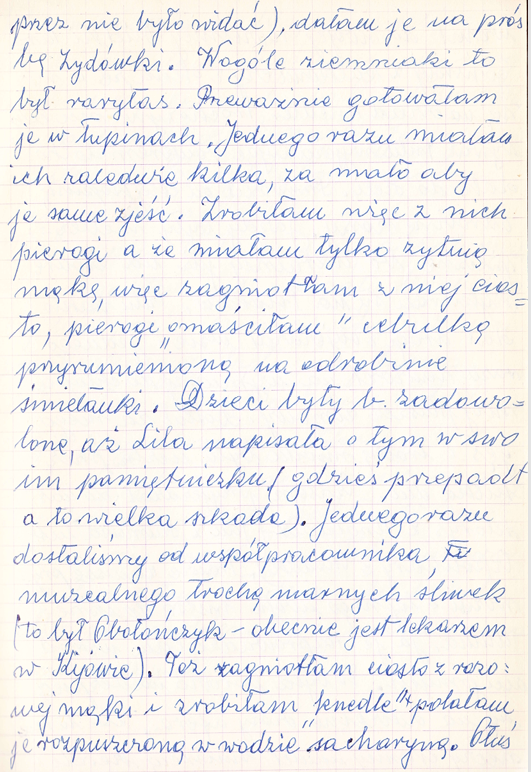 przez nie było widać), dałam je na proś
bę Żydówki. Wogóle ziemniaki to
był rarytas. Przeważnie gotowałam
je w łupinach. Jednego razu miałam
ich zaledwie kilka, za mało aby
je same zjeść. Zrobiłam więc z nich
pierogi a że miałam tylko żytnią
mąkę, więc zagniotłam z niej cias=
to, pierogi „omaściłam" cebulką
przyrumienioną na odrobinie
śmietanki. Dzieci były b. zadowo=
lone, aż Lila napisała o tym w swo
im pamiętniczku (gdzieś przepadł
a to wielka szkoda). Jednego razu
dostaliśmy od współpracownika
muzealnego trochę marnych śliwek
(to był Obołończyk – obecnie jest lekarzem
w Kijowie). Toż zagniotłam ciasto z razo:
wej mąki i zrobiłam „knedle" polałam
je rozpuszczoną w wodzie sacharyną. Oluś